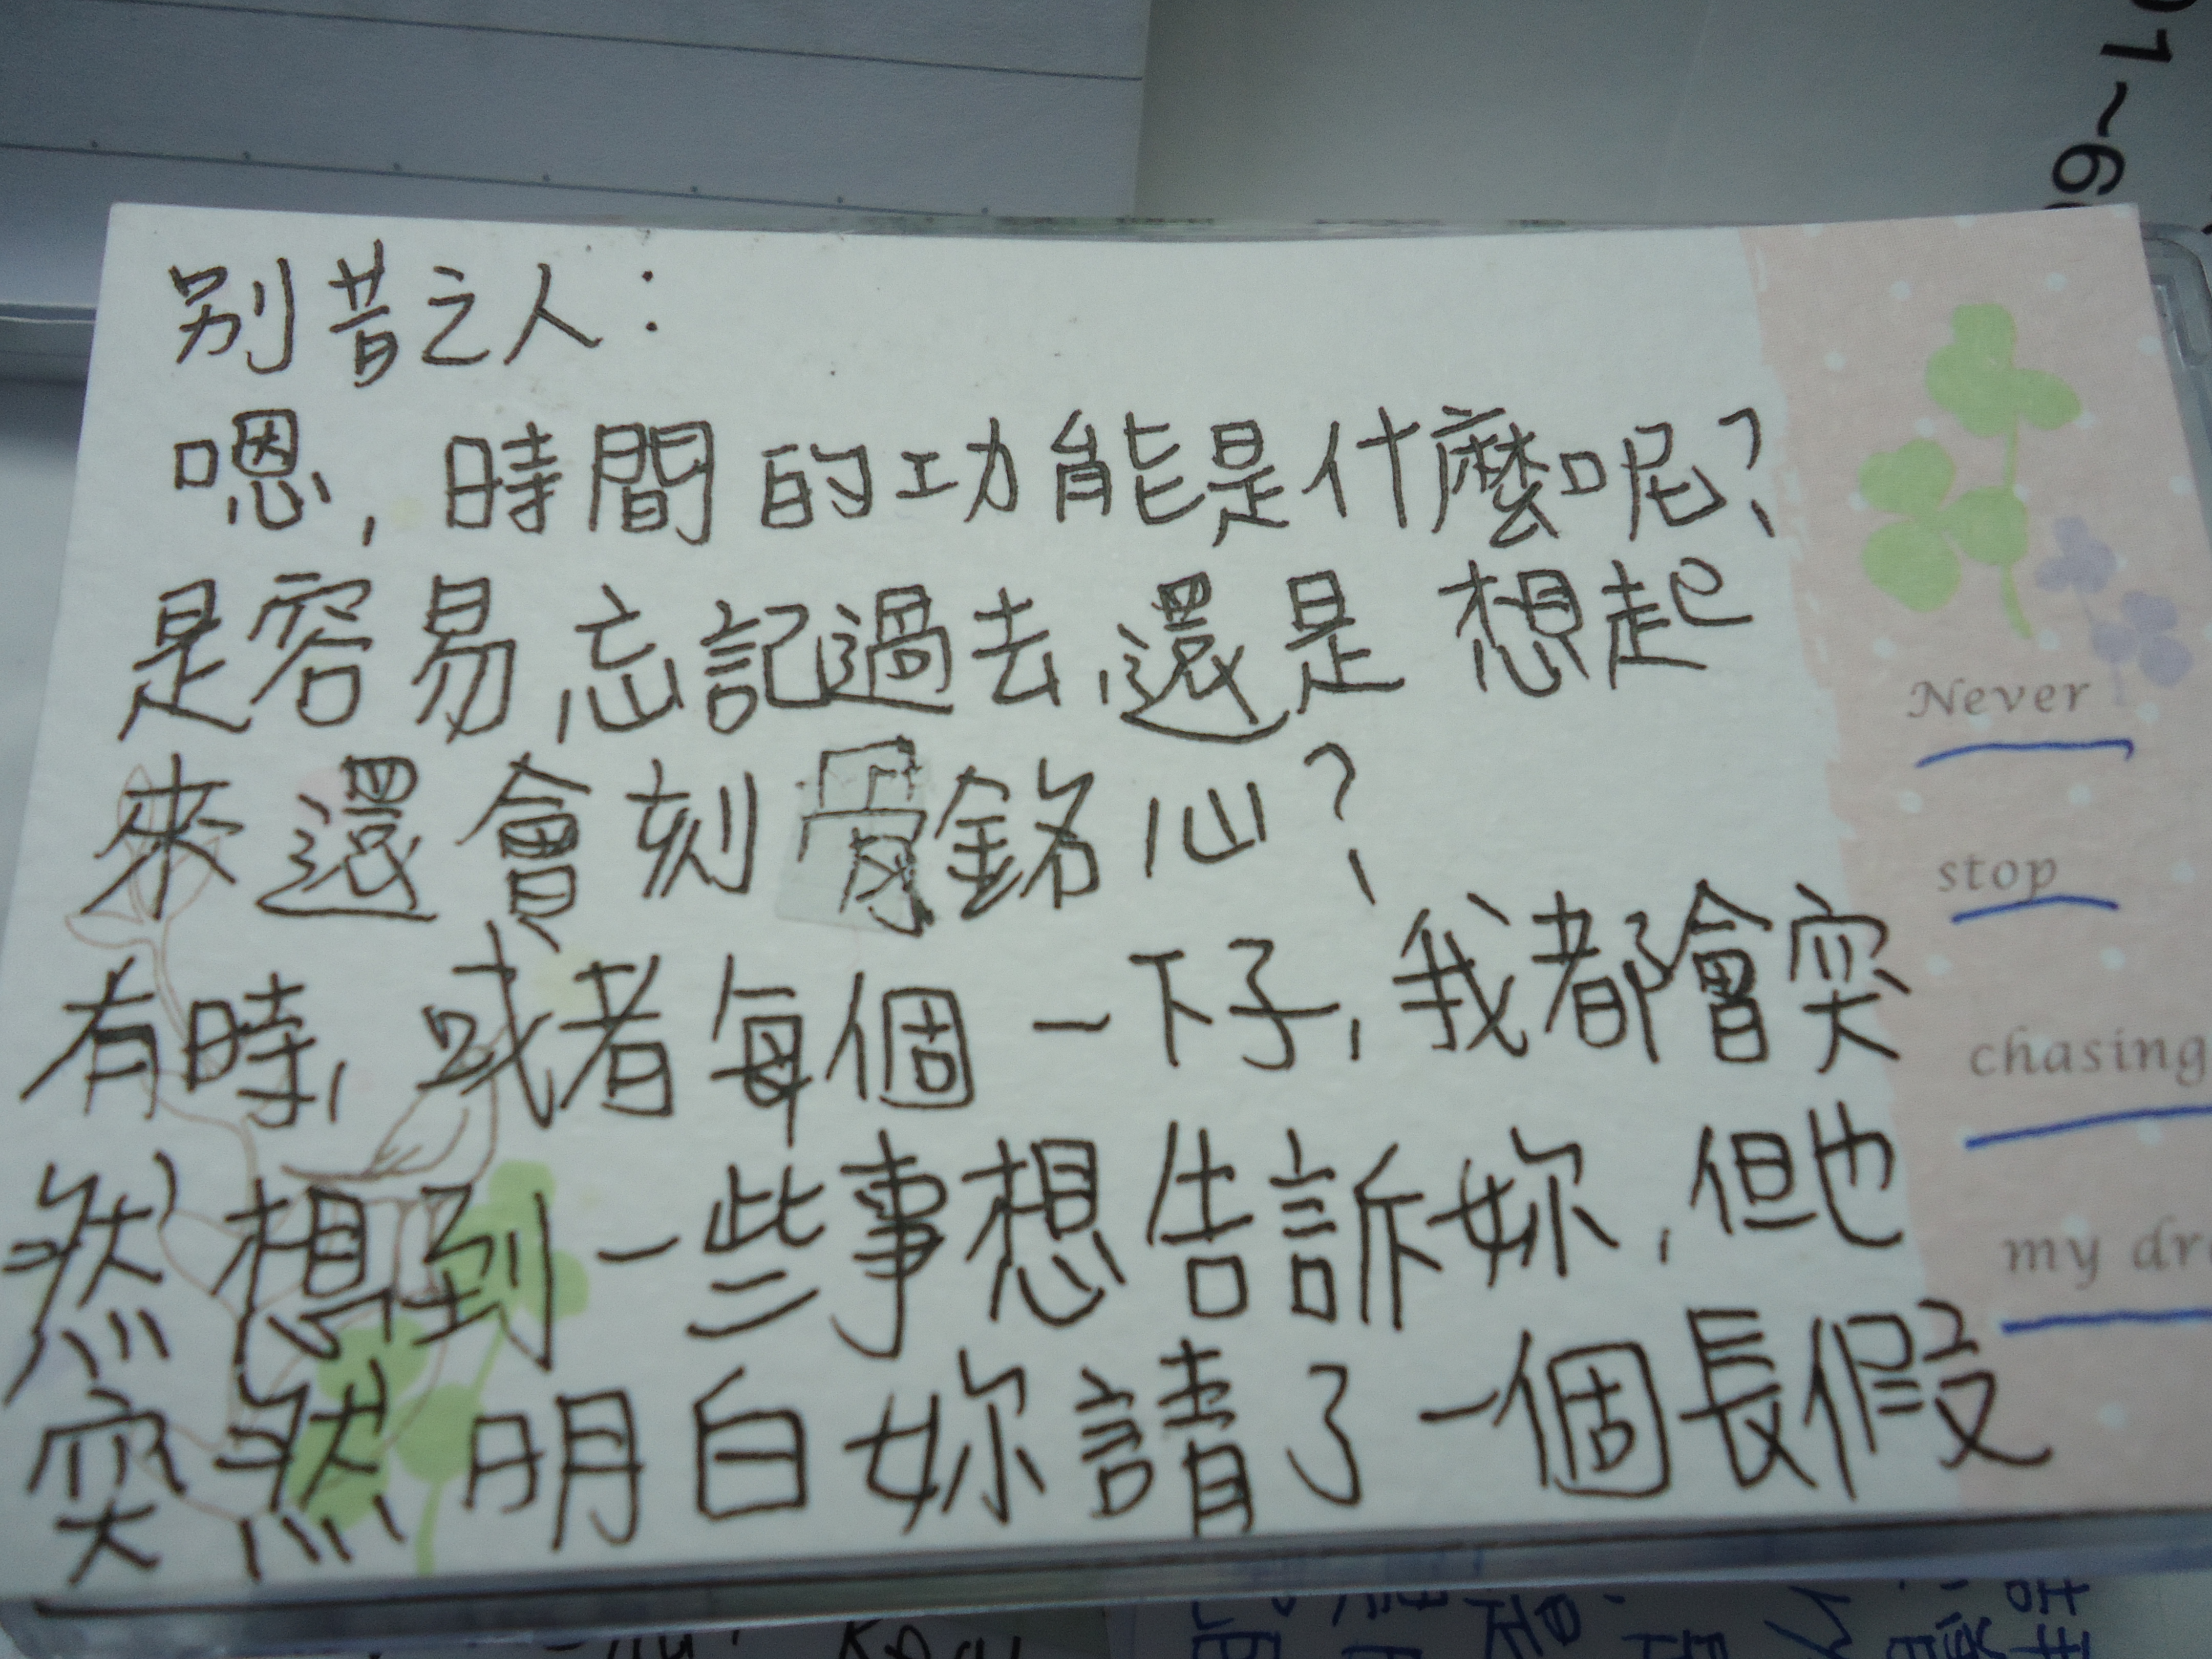 别昔之人：
嗯，時間的功能是什麼呢？
是容易忘記過去，還是想起
來還會刻骨銘心？
有時，或者每個一下子，我都會突
然想到一些事想告訴妳，但也
突然明白妳請了一個長假
Never
stop
chasing
my dr
01~6